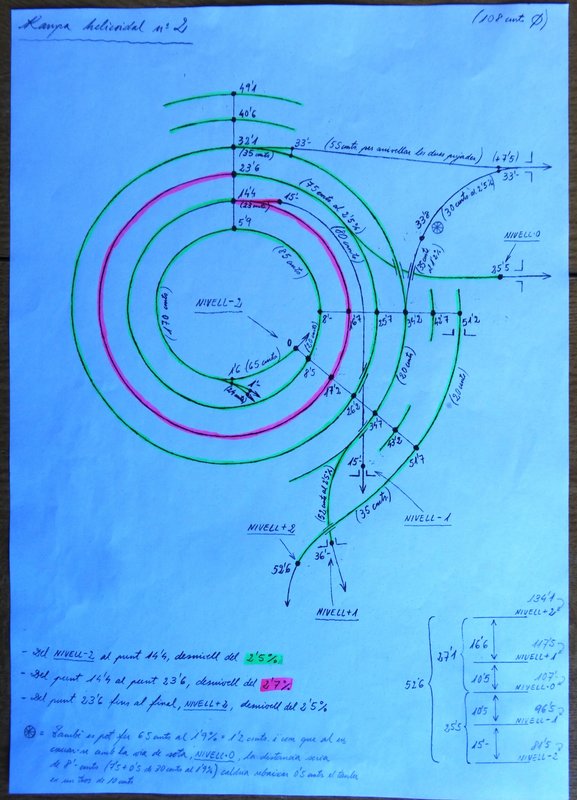 Rampa helicoidal nº 2
(108 cmts Ø)
49'1
40'6
32'1
(35 cmts)
33'-
(55 cmts per anivellar les dues pujades)
(+7'5)
33'-
23'6
14'4
(23 cmts)
15'-
(75 cmts al 2'5%)
(80 cmts)
33'8
(30 cmts al 2'5%)
NIVELL-0
25'5
5'9
(85 cmts)
(170 cmts)
NIVELL-2
8'-
16'7
25'7
34'2
42'7
51'2
0
(20 cmts)
8'5
1'6 (65 cmts)
1'-
17'2
26'2
34'7
43'2
51'7
(20 cmts)
(20 cmts)
15'-
(52 cmts al 2'5%)
(35 cmts)
NIVELL-1
NIVELL+2
52'6
36'-
NIVELL+1
- Del NIVELL-2 al punt 14'4, desnivell del 2'5%
- Del punt 14'4 al punt 23'6, desnivell del 2'7%
- Del punt 23'6 fins al final, NIVELL+2, desnivell del 2'5%
= També es pot fer 65 cmts al 1'9% = 1'2 cmts i com que al
creuar-se amb la via de sota, NIVELL-0, la distancia seria
de 8'- cmts (7'5 + 0'5 de 30 cmts al 1'9%) caldria rebaixar 0'5 cmts el tauler
en un tros de 10 cmts
134'1
NIVELL+2
16'6
117'5
NIVELL+1
27'1
10'5
107'-
NIVELL-0
52'6
10'5
96'5
NIVELL-1
25'5
15'-
81'5
NIVELL-2